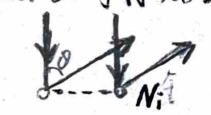 θ
Ni